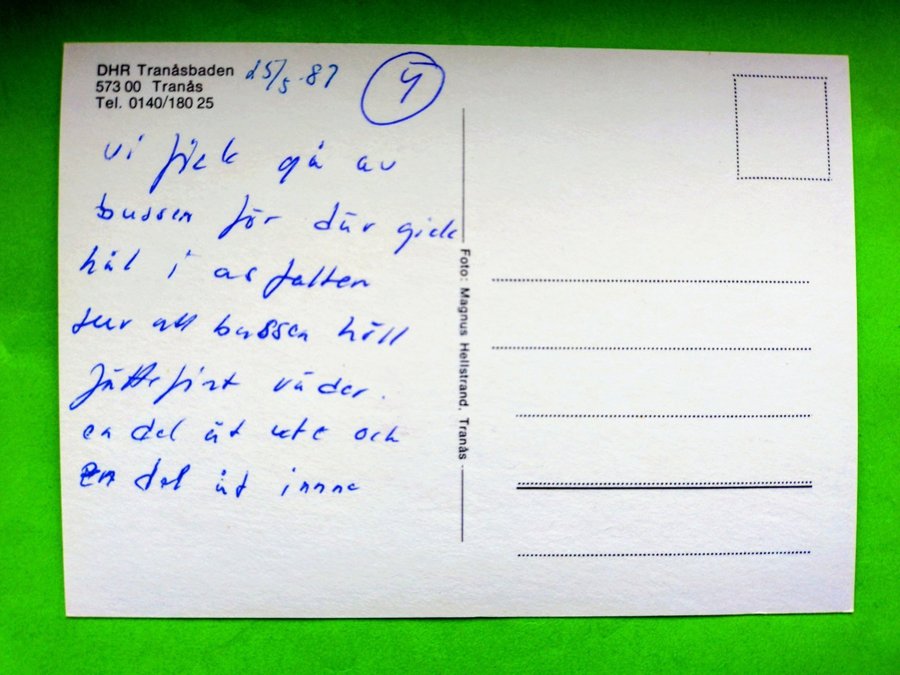 DHR Tranåsbaden 25/5-87
573 00 Tranås
Tel. 0140/180 25
4
vi fick gå av
bussen för där gick
hål i asfalten
tur att bussen höll
jättefint väder.
en del åt ute och
en del åt inne
Foto: Magnus Hellstrand, Tranås